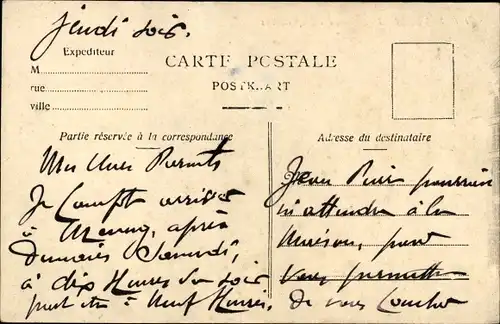 Jeudi soir.
Expediteur
M
rue
ville
CARTE POSTALE
POSTKART
Partie réservée à la correspondance
Adresse du destinataire
Mes chers Parents
Je Compte arriver
à après
Samedi,
à dix Heures du soir
peut être à Neuf Heures,
Jean pourrait
m'attendre à la
Maison, pour
vous permettre
de vous coucher